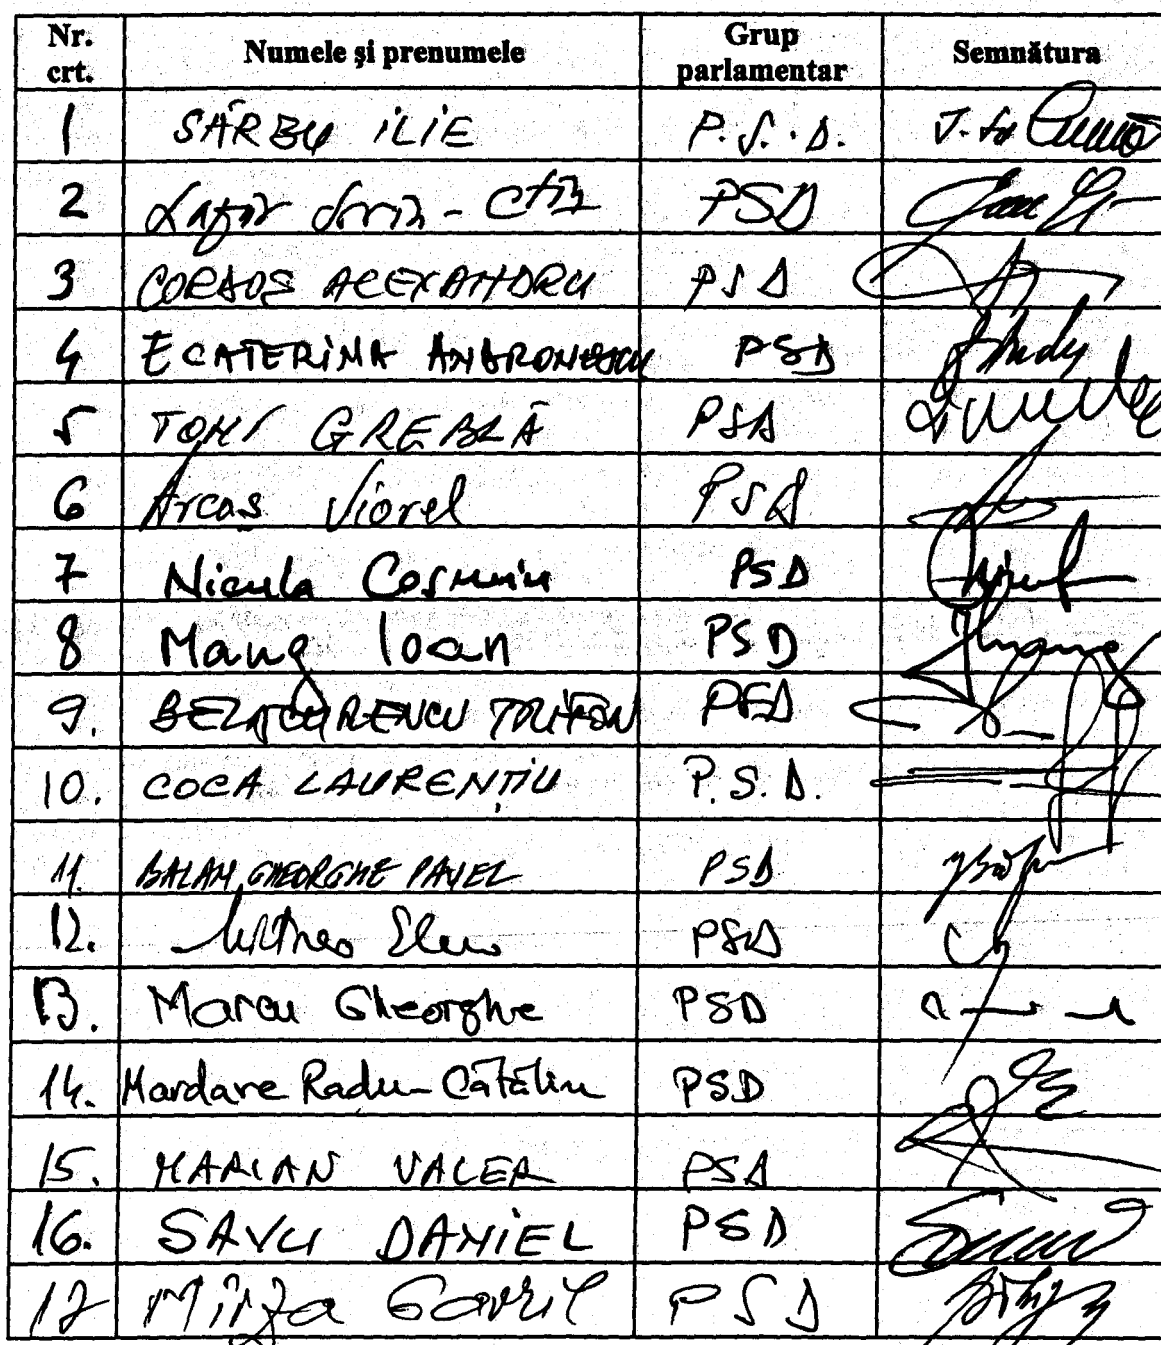 Nr. crt. Numele și prenumele Grup parlamentar Semnătura
1 SÂRBU ILIE P.S.D.
2 PSD
3 CORDOȘ ALEXANDRU PSD
4 ECATERINA ANDRONESCU PSD
5 TONI GREBLĂ PSD
6 Arcaș Viorel PSD
7 Nicula Cosmin PSD
8 Mang Ioan PSD
9. BELACURENCU TRIFON PSD
10. COCA LAURENȚIU P.S.D.
11. BALAN GHEORGHE PAVEL PSD
12. PSD
13. Marcu Gheorghe PSD
14. Mardare Radu-Cătălin PSD
15. MARIAN VALER PSD
16. SAVU DANIEL PSD
17 Mîrza Gavril PSD